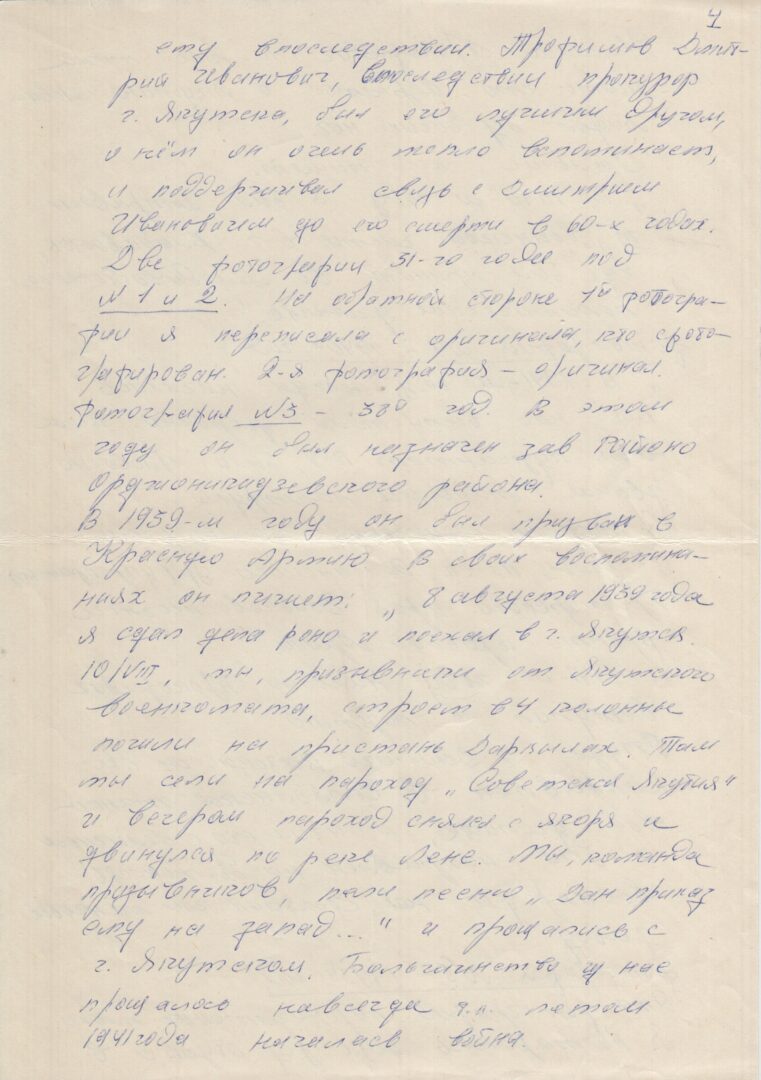 4
ему впоследствии. Трофимов Дмит-
рий Иванович, впоследствии прокурор
г. Якутска, был его лучшим другом,
о нём он очень тепло вспоминает,
и поддерживал связь с Дмитрием
Ивановичем до его смерти в 60-х годах.
Две фотографии 31-го года под
№ 1 и 2. На обратной стороне 1й фотогра-
фии я переписала с оригинала, кто сфото-
графирован. 2-я фотография – оригинал.
Фотография №3 – 38й год. В этом
году он был назначен зав Районо
Орджоникидзевского района.
В 1939-м году он был призван в
Красную Армию. В своих воспомина-
ниях он пишет: „8 августа 1939 года
я сдал дела роно и поехал в г. Якутск.
10/VIII, мы, призывники от Якутского
военкомата, строем в 4 колонны
пошли на пристань Даркылах. Там
мы сели на пароход „Советская Якутия"
и вечером пароход снялся с якоря и
двинулся по реке Лене. Мы, команда
призывников, пели песню „Дан приказ
ему на запад..." и прощались с
г. Якутском. Большинство из нас
прощалось навсегда т.к. летом
1941 года началась война.